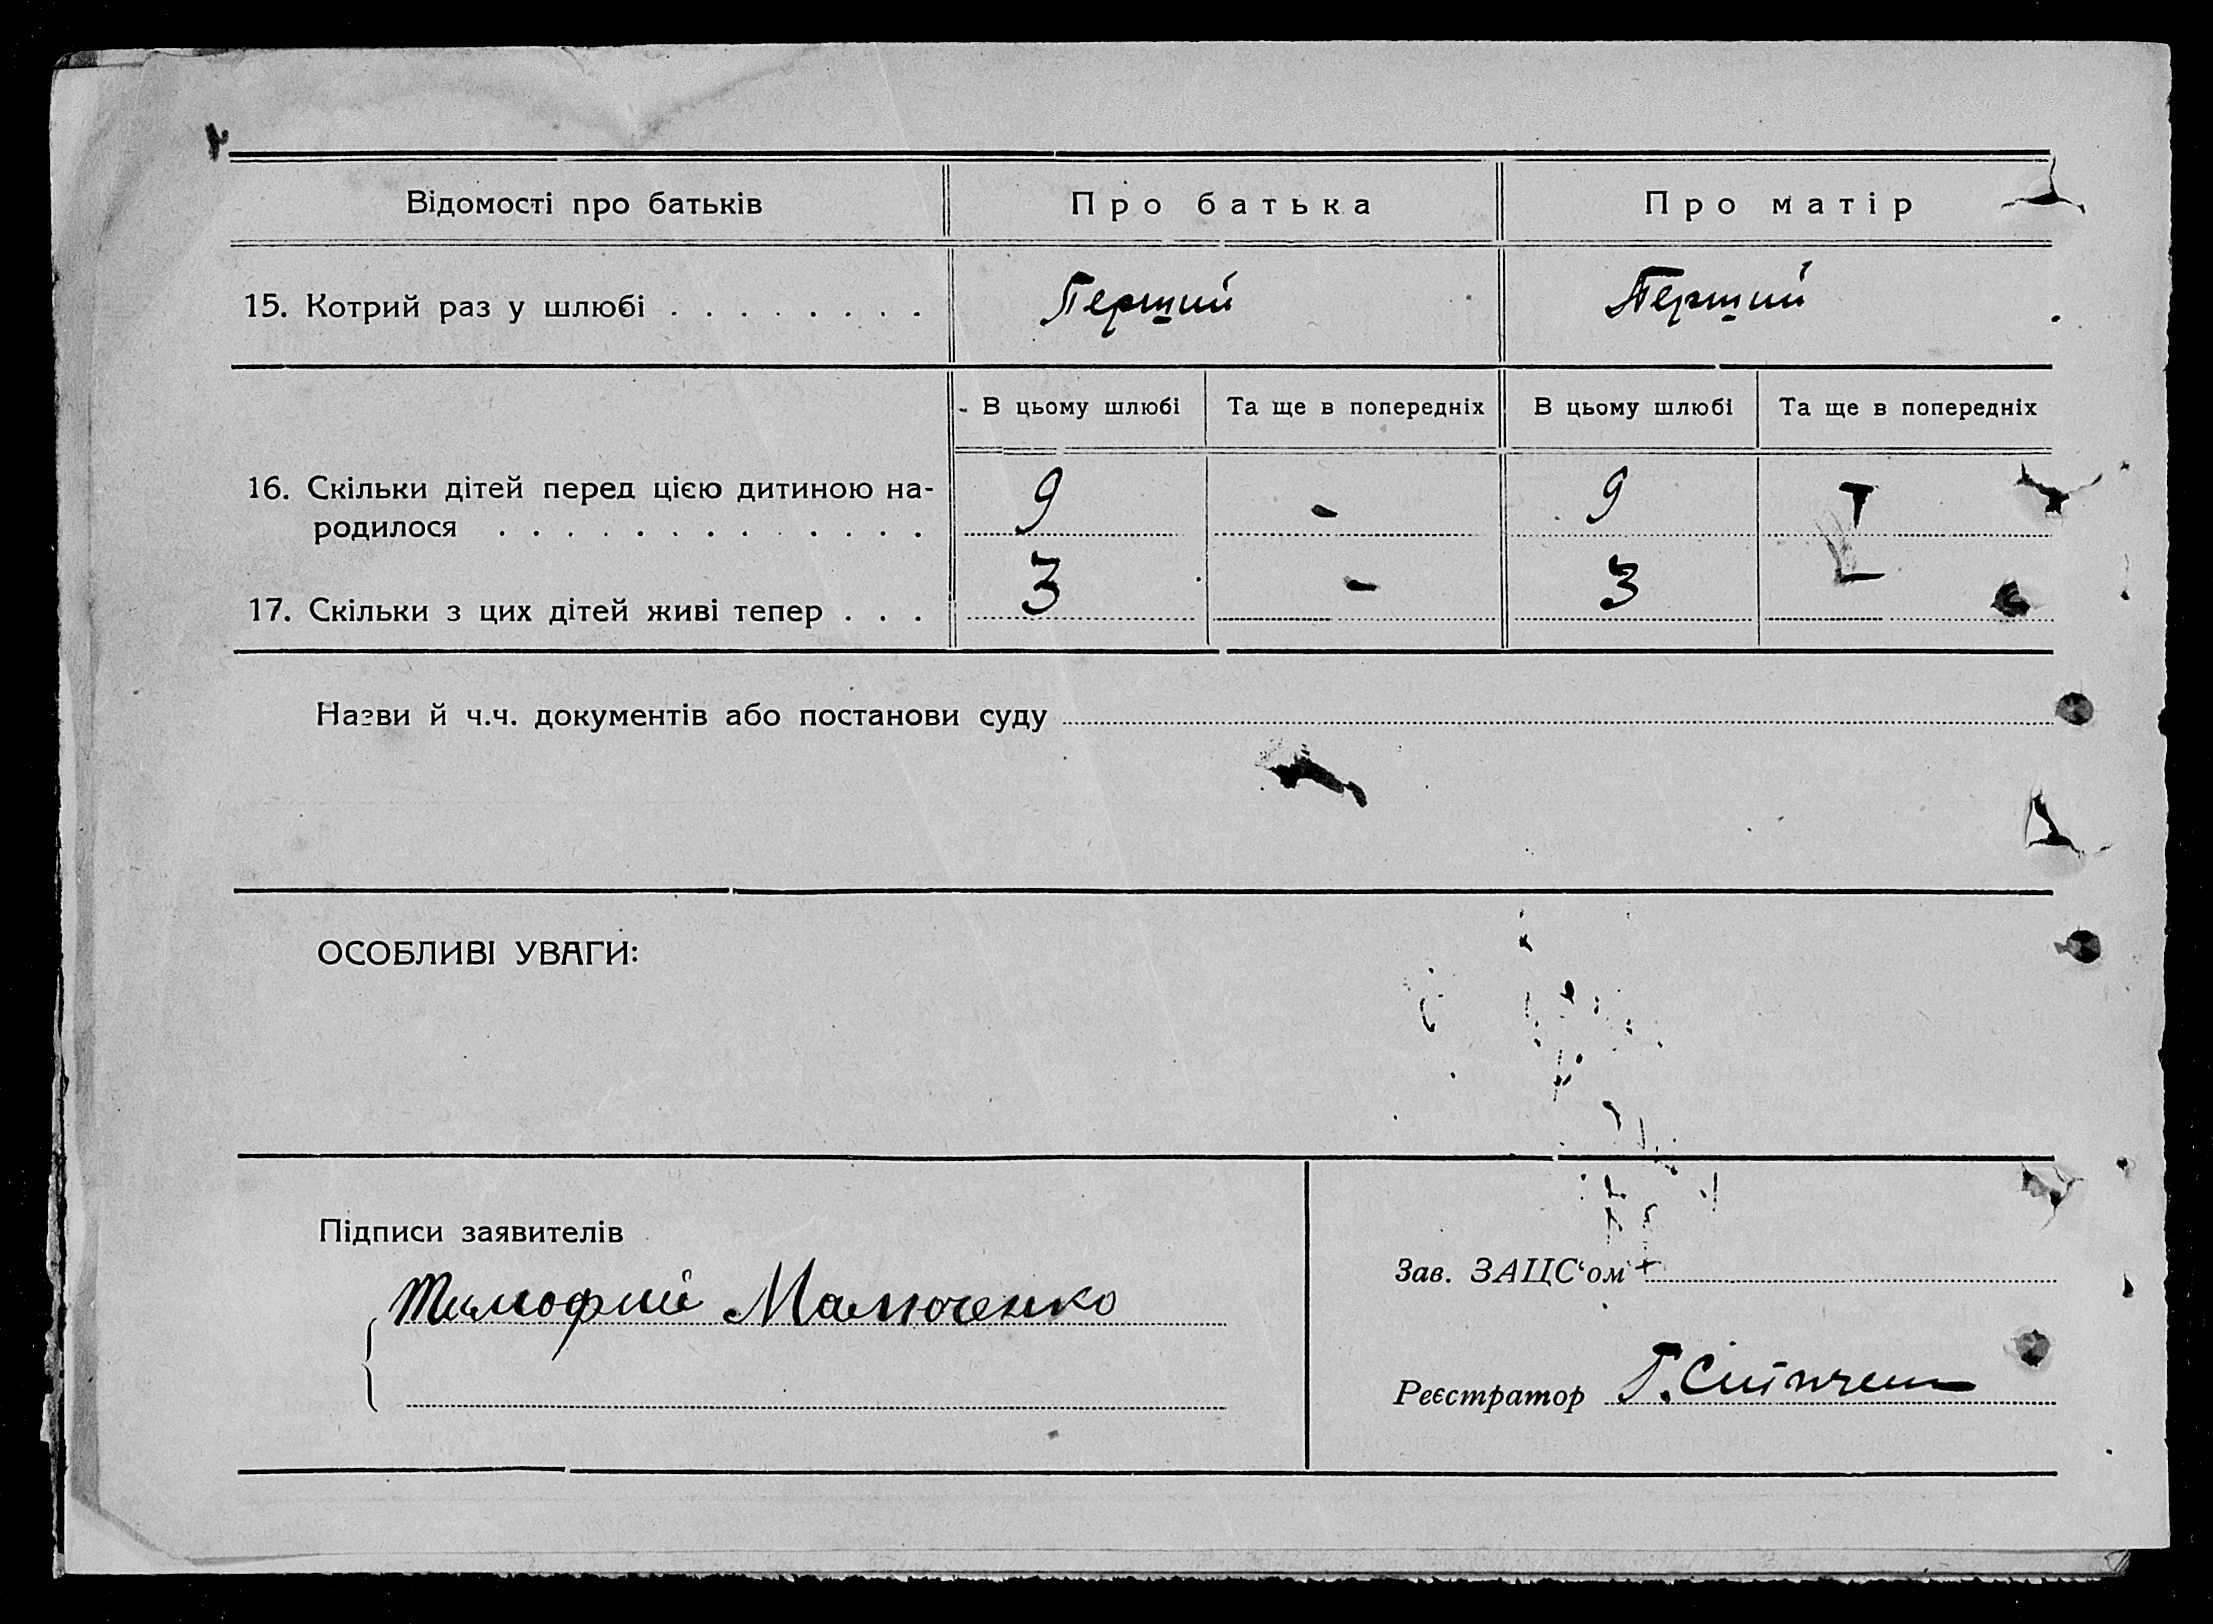 Відомості про батьків Про батька Про матір
15. Котрий раз у шлюбі . . . . . . . . Перший Перший
В цьому шлюбі Та ще в попередніх В цьому шлюбі Та ще в попередніх
16. Скільки дітей перед цією дитиною на-
родилося . . . . . . . . . . . . . 9 - 9 -
17. Скільки з цих дітей живі тепер . . . 3 - 3 -
Назви й ч.ч. документів або постанови суду
ОСОБЛИВІ УВАГИ:
Підписи заявителів
Тимофий Малюченко
Зав. ЗАЦС‘ом
Реєстратор Г.